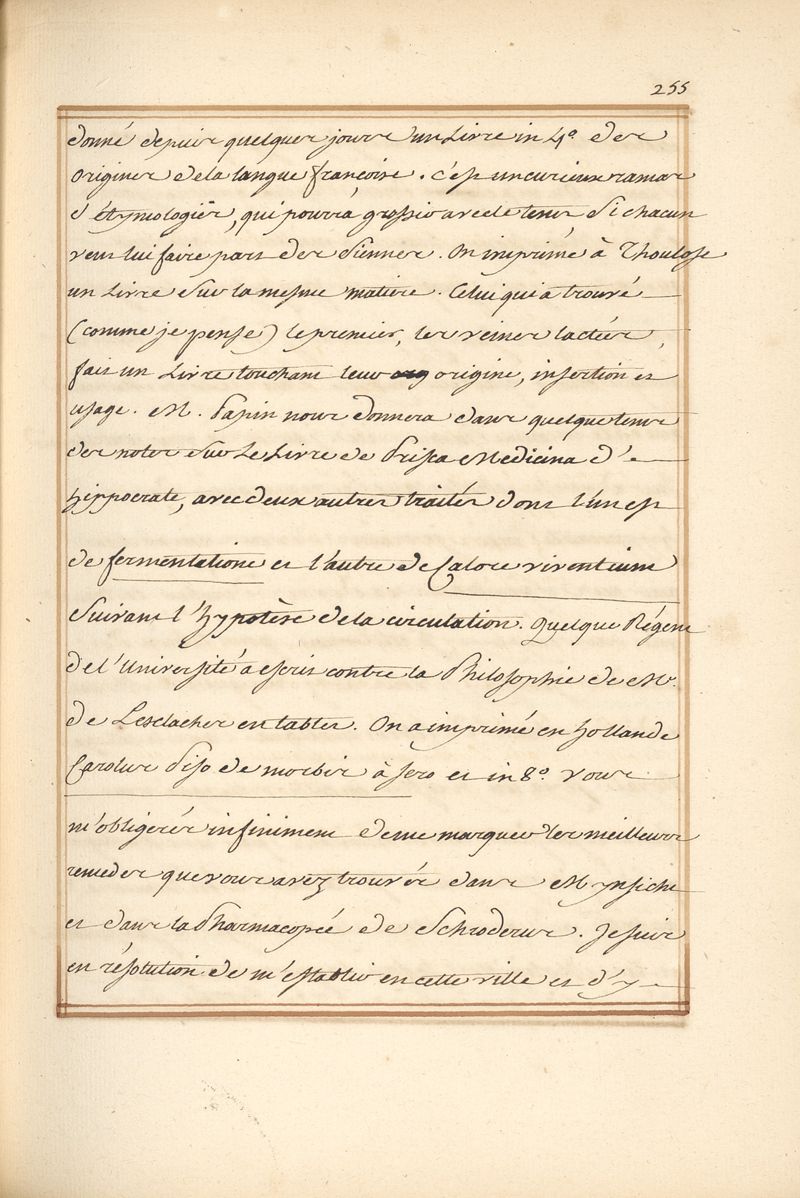 255
donné depuis quelques jours un Livre in 4.° des
Origines de la langue françoise. C'est un curieux ramas
d'étymologiës, qui pourra grossir avec le tems si chacun
veut lui faire part des siennes. On imprime à Thoulose
un Livre sur la mesme matiere. Celui qui a trouvé
(comme je pense) le premier, les veines lactées,
fait un Livre touchant leur origine, insertion et
usage. M. Papin nous donnera dans quelque tems
des notes sur Le Livre de Prisca Medicina d'
hippocrate, avec deux autres traités dont l'un est
de fermentatione et l'autre de Calore viventium
suivant l'hypotèse de la circulation. Quelque Régent
de l'Université a escrit contre la Philosophie de M.
de Lesclaches en tables. On a imprimé en hollande
Carolus Piso de morbis à sero et in 8.° vous
m'obligerés infiniment de me marquer les meilleurs
remedes que vous avez trouvés dans Mynsicht
et dans la Pharmacopéé de Schroderus. Je suis
en résolution de m'establir en cette ville et d'y